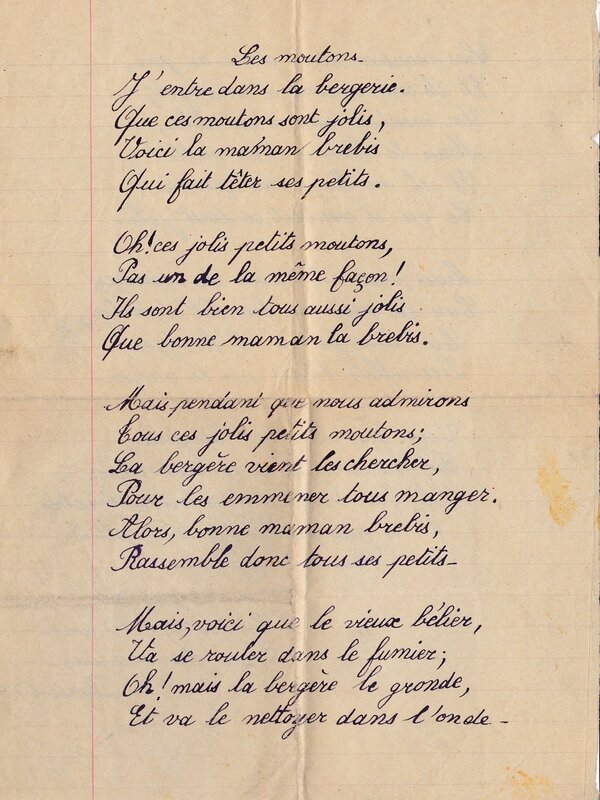 Les moutons.
J'entre dans la bergerie.
Que ces moutons sont jolis,
Voici la maman brebis
Qui fait têter ses petits.
Oh! ces jolis petits moutons,
Pas un de la même façon!
Ils sont bien tous aussi jolis
Que bonne maman la brebis.
Mais pendant que nous admirons
Tous ces jolis petits moutons;
La bergère vient les chercher,
Pour les emmener tous manger.
Alors, bonne maman brebis,
Rassemble donc tous ses petits_
Mais, voici que le vieux bélier,
Va se rouler dans le fumier;
Oh! mais la bergère le gronde,
Et va le nettoyer dans l'onde_